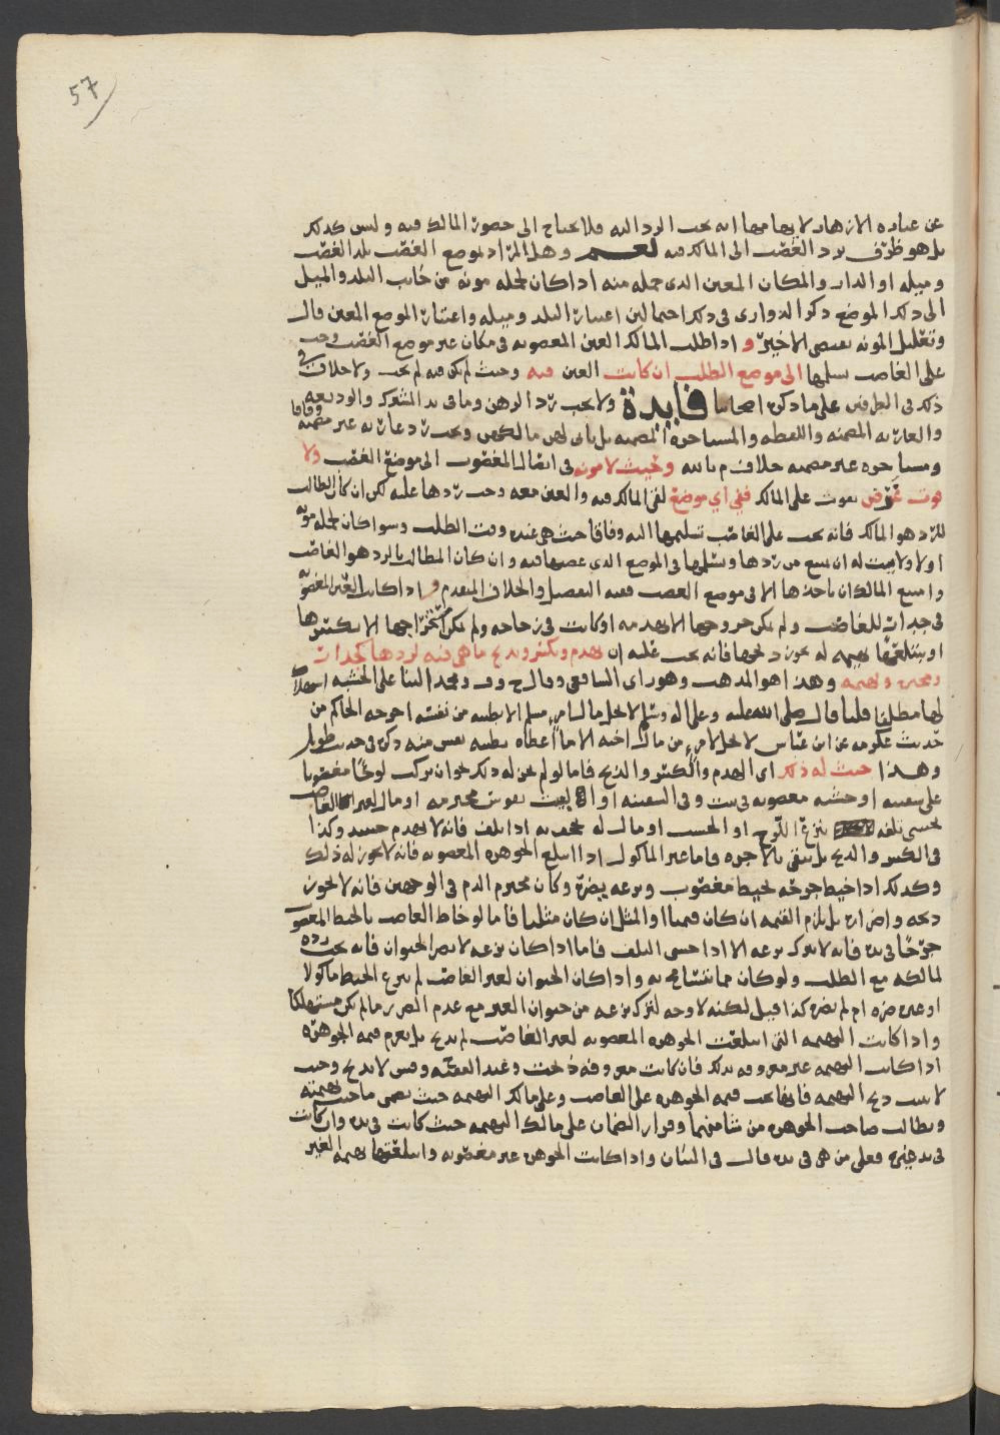 57
عن عباره الازهار لايهامها انه يجب الرد اليه فلا يحتاج الى حضور المالك فيه وليس كذلك
بل هو ظرف يرد الغصب الى المالك فيه نعم وهل المراد بموضع الغصب بلد الغصب
وميله او الدار والمكان المعين الذي حمله منه اذا كان لحمله مونه من جانب البلد والميل
الى ذلك الموضع ذكر الدواري في ذلك احتمالين اعتبار البلد وميله واعتبار الموضع المعين قال
وتعليل المونه يقتضي الاخير و اذا طلب المالك العين المغصوبه في مكان غير موضع الغصب وجب
على الغاصب تسليمها الى موضع الطلب ان كانت العين فيه وحيث لم يكن فيه لم يجب ولا خلاف في
ذلك في على ما ذكره اصحابنا فايدة ولا يجب رد الرهن وما في يد المشترك والوديعه
والعاريه المضمنه واللقطه والمستاجره المضمنه وتجب رد عاريه غير مضمنه وفاقا
ومستاجره غير مضمنه خلاف م بالله وحيث لا مونه في انتقال المغصوب الى موضع الغصب ولا
فوت غرض يفوت على المالك ففي اي موضع لقي المالك فيه والعين معه وجب ردها عليه لكن ان كان الطالب
للرد هو المالك فانه يجب على الغاصب تسليمها اليه وفاقا حيث هي عنده وقت الطلب وسوا كان لحمله مونه
او لا ولا يثبت له ان يمتنع من ردها ويسلمها في الموضع الذي غصبها فيه وان كان المطالب بالرد هو الغاصب
وامتنع المالك ان ياخذها الا في موضع الغصب ففيه التفصيل والخلاف المتقدم و اذا كانت العين المغصوبه
في جدار للغاصب ولم يكن خروجها الا بهدمه او كانت في زجاجه ولم يكن اخراجها الا بكسرها
او ابتلعتها بهيمه له يجوز ذبحها فانه يجب عليه ان يهدم ويكسر ويذبح ما هي فيه لردها كجدار
ومحبره وبهيمه وهذا هو المذهب وهو راي الشافعي وقال ح وف ومحمد البنا على الخشبه استهلاك
لها مطلقا قلنا قال صلى الله عليه وعلى اله وسلم لا يحل مال امرء مسلم الا بطيبه من نفسه اخرجه الحاكم من
حديث عكرمه عن ابن عباس لا يحل لامرء من مال اخيه الا ما اعطاه بطيبه نفس منه ذكره في حديث طويل
وهذا حيث له ذلك اي الهدم والكسر والذبح فاما لو لم يجز له ذلك نحو ان يركب لوحا مغصوبا
على سفينه او خشبه مغصوبه في بيت وفي السفينه او البيت نفوس محترمه او مال لغير الغاصب
يخشى تلفه بنزع اللوح او الخشب او مال له يجحف به اذا تلف فانه لا يهدم حينئذ وكذا
في الكسر والذبح بل تبقى بالاجره فاما غير الماكول اذا ابتلع الجوهره المغصوبه فانه لا يجوز له ذلك
وكذلك اذا خيط جرحه بخيط مغصوب ونزعه يضره وكان محترم الدم في الوجهين فانه لا يجوز
ذبحه واضراره بل يلزم القيمه ان كان قيميا او المثل ان كان مثليا فاما لو خاط الغاصب بالخيط المغصوب
جرحا في يده فانه لا يترك نزعه الا اذا خشي التلف فاما اذا كان نزعه لا يضر الحيوان فانه يجب رده
لمالكه مع الطلب ولو كان مما يتسامح به واذا كان الحيوان لغير الغاصب لم ينزع الخيط ماكولا
او غيره ضره ام لم يضره كذا قيل لكنه لا وجه لترك نزعه من حيوان الغير مع عدم الضرر ما لم يكن مستهلكا
واذا كانت البهيمه التي ابتلعت الجوهره المغصوبه لغير الغاصب لم تذبح بل يغرم قيمه الجوهره
اذا كانت البهيمه غير معروفه بذلك فان كانت معروفه ذبحت وعند الفقيه وس لا تذبح وحيث
لا يثبت ذبح البهيمه فانها تجب قيمه الجوهره على الغاصب وعلى مالك البهيمه حيث يضمن صاحب بهيمته
ويطالب صاحب الجوهره من شا منهما وقرار الضمان على مالك البهيمه حيث كانت في يده وان كانت
في يد غيره فعلى من هي في يده قال في البيان واذا كانت الجوهره غير مغصوبه وابتلعتها بهيمه الغير